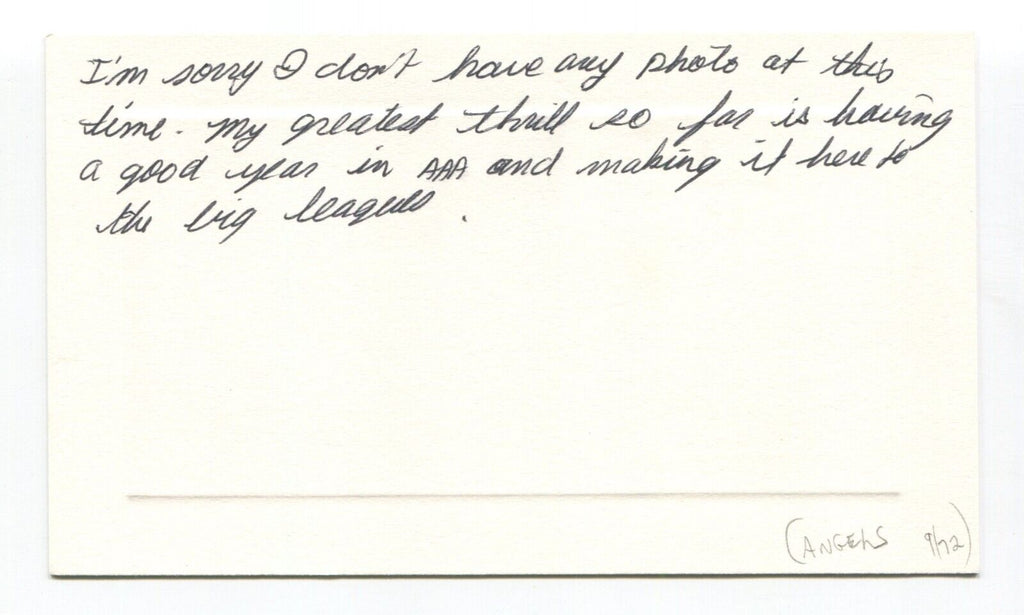 I'm sorry I don't have any photo at this
time. My greatest thrill so far is having
a good year in AAA and making it here to
the big leagues.
(ANGELS 9/72)